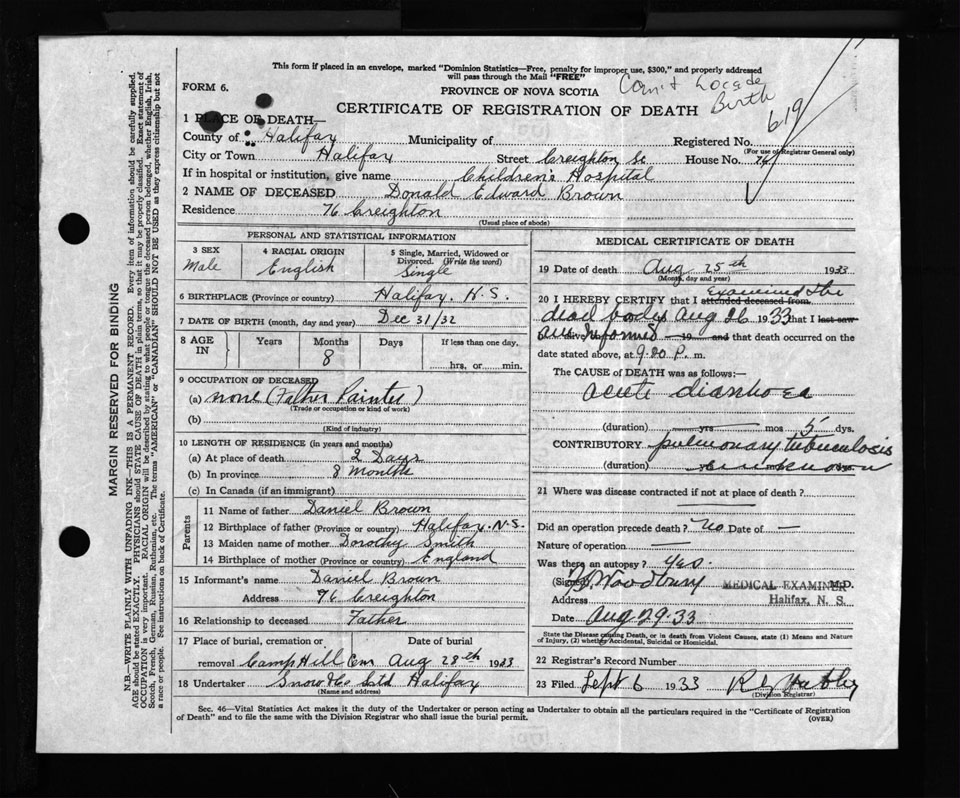 This form if placed in an envelope, marked "Dominion Statistics—Free, penalty for improper use, $300," and properly addressed
will pass through the Mail "FREE"
FORM 6.
PROVINCE OF NOVA SCOTIA
Birth
619
CERTIFICATE OF REGISTRATION OF DEATH
1 PLACE OF DEATH—
County of Halifax Municipality of Registered No.
(For use of Registrar General only)
City or Town Halifax Street Creighton St House No. 76
If in hospital or institution, give name Children's Hospital
2 NAME OF DECEASED Donald Edward Brown
Residence 76 Creighton
(Usual place of abode)
PERSONAL AND STATISTICAL INFORMATION
3 SEX Male
4 RACIAL ORIGIN English
5 Single, Married, Widowed or Divorced. (Write the word) Single
6 BIRTHPLACE (Province or country) Halifax. N.S.
7 DATE OF BIRTH (month, day and year) Dec 31/32
8 AGE IN Years Months Days If less than one day.
8
hrs. or min.
9 OCCUPATION OF DECEASED
(a) none (Father Painter)
(Trade or occupation or kind of work)
(b)
(Kind of industry)
10 LENGTH OF RESIDENCE (in years and months)
(a) At place of death 2 Days
(b) In province 8 Months
(c) In Canada (if an immigrant)
Parents
11 Name of father Daniel Brown
12 Birthplace of father (Province or country) Halifax. N.S.
13 Maiden name of mother Dorothy Smith
14 Birthplace of mother (Province or country) England
15 Informant's name Daniel Brown
Address 76 Creighton
16 Relationship to deceased Father
17 Place of burial, cremation or Date of burial
removal Camp Hill Cem Aug 28th 1933
18 Undertaker Snow & Co Ltd Halifax
(Name and address)
MEDICAL CERTIFICATE OF DEATH
19 Date of death Aug 25th 1933
(Month, day and year)
Examined the
20 I HEREBY CERTIFY that I attended deceased from
dead body Aug 26 1933 that I last saw
am informed 19 and that death occurred on the
date stated above, at 9.20 P. m.
The CAUSE OF DEATH was as follows:
acute diarrhoea
(duration) yrs mos 5 dys.
CONTRIBUTORY pulmonary tuberculosis
(duration) unknown
21 Where was disease contracted if not at place of death?
Did an operation precede death? No Date of —
Nature of operation —
Was there an autopsy? Yes.
(Signed) Woodbury MEDICAL EXAMINER M.D.
Address Halifax, N. S.
Date Aug 29.33
State the Disease causing Death, or in death from Violent Causes, state (1) Means and Nature
of Injury, (2) whether Accidental, Suicidal or Homicidal.
22 Registrar's Record Number
23 Filed Sept 6 1933
(Division Registrar)
Sec. 46—Vital Statistics Act makes it the duty of the Undertaker or person acting as Undertaker to obtain all the particulars required in the "Certificate of Registration
of Death" and to file the same with the Division Registrar who shall issue the burial permit.
(OVER)
MARGIN RESERVED FOR BINDING
N.B.—WRITE PLAINLY WITH UNFADING INK—THIS IS A PERMANENT RECORD. Every item of information should be carefully supplied.
AGE should be stated EXACTLY. PHYSICIANS should STATE CAUSE OF DEATH in plain terms, so that it may be properly classified. Exact statement of
OCCUPATION is very important. RACIAL ORIGIN will be described by stating to what people or tongue the deceased person belonged, whether English, Irish,
Scotch, French, German, Russian, Ruthenian, etc. The terms "AMERICAN" or "CANADIAN" SHOULD NOT BE USED as they express citizenship but not
a race or people. See instructions on back of Certificate.